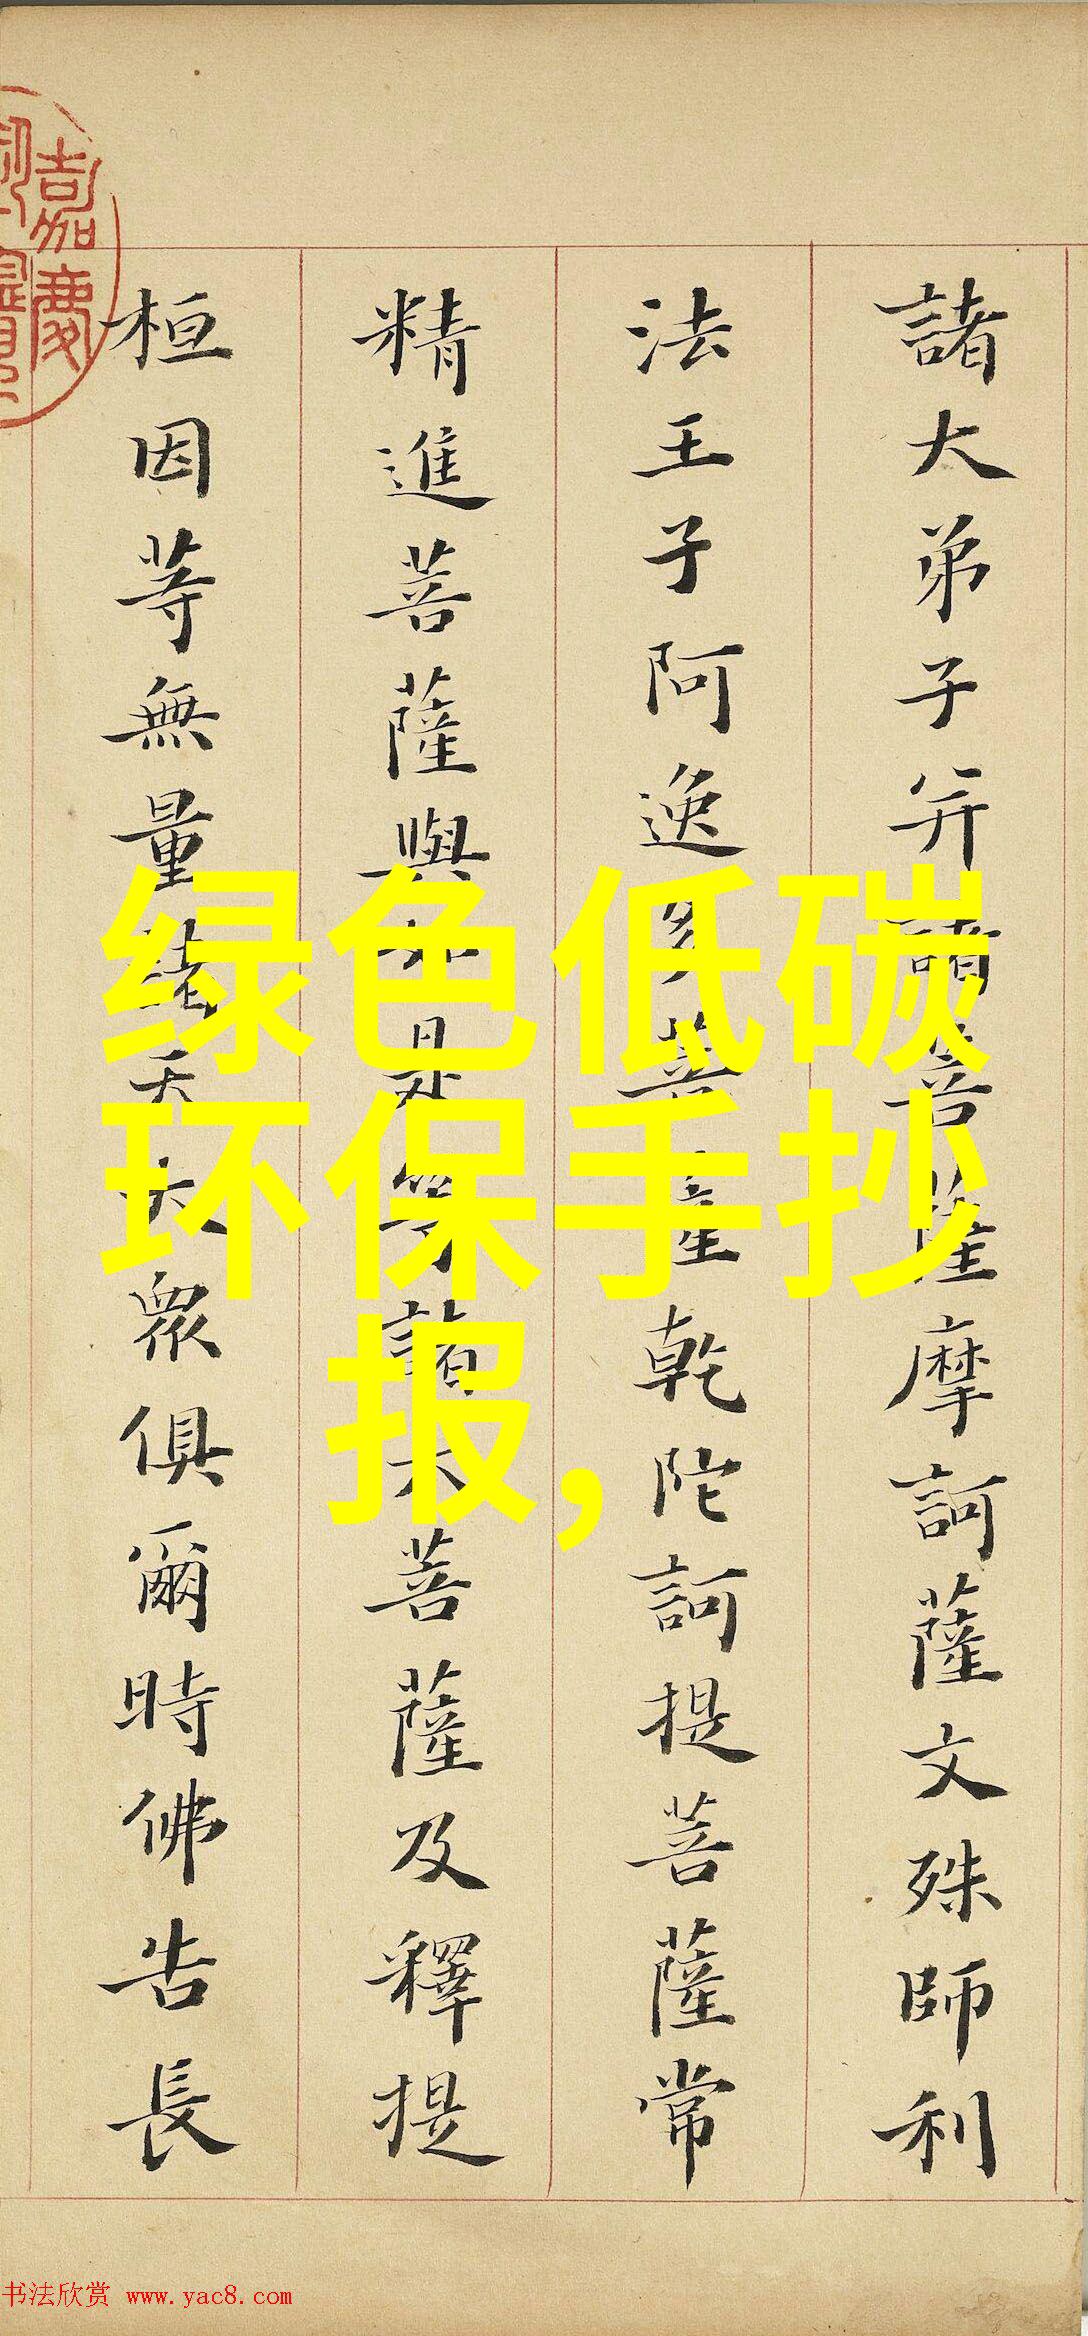 諸大弟子并諸菩薩摩訶薩文殊師利
法王子阿逸多菩薩乾陀訶提菩薩常
精進菩薩與如是等諸大菩薩及釋提
桓因等無量諸天大眾俱爾時佛告長
嘉慶
绿色低碳
环保手抄
报,
书法欣赏 www.yac8.com